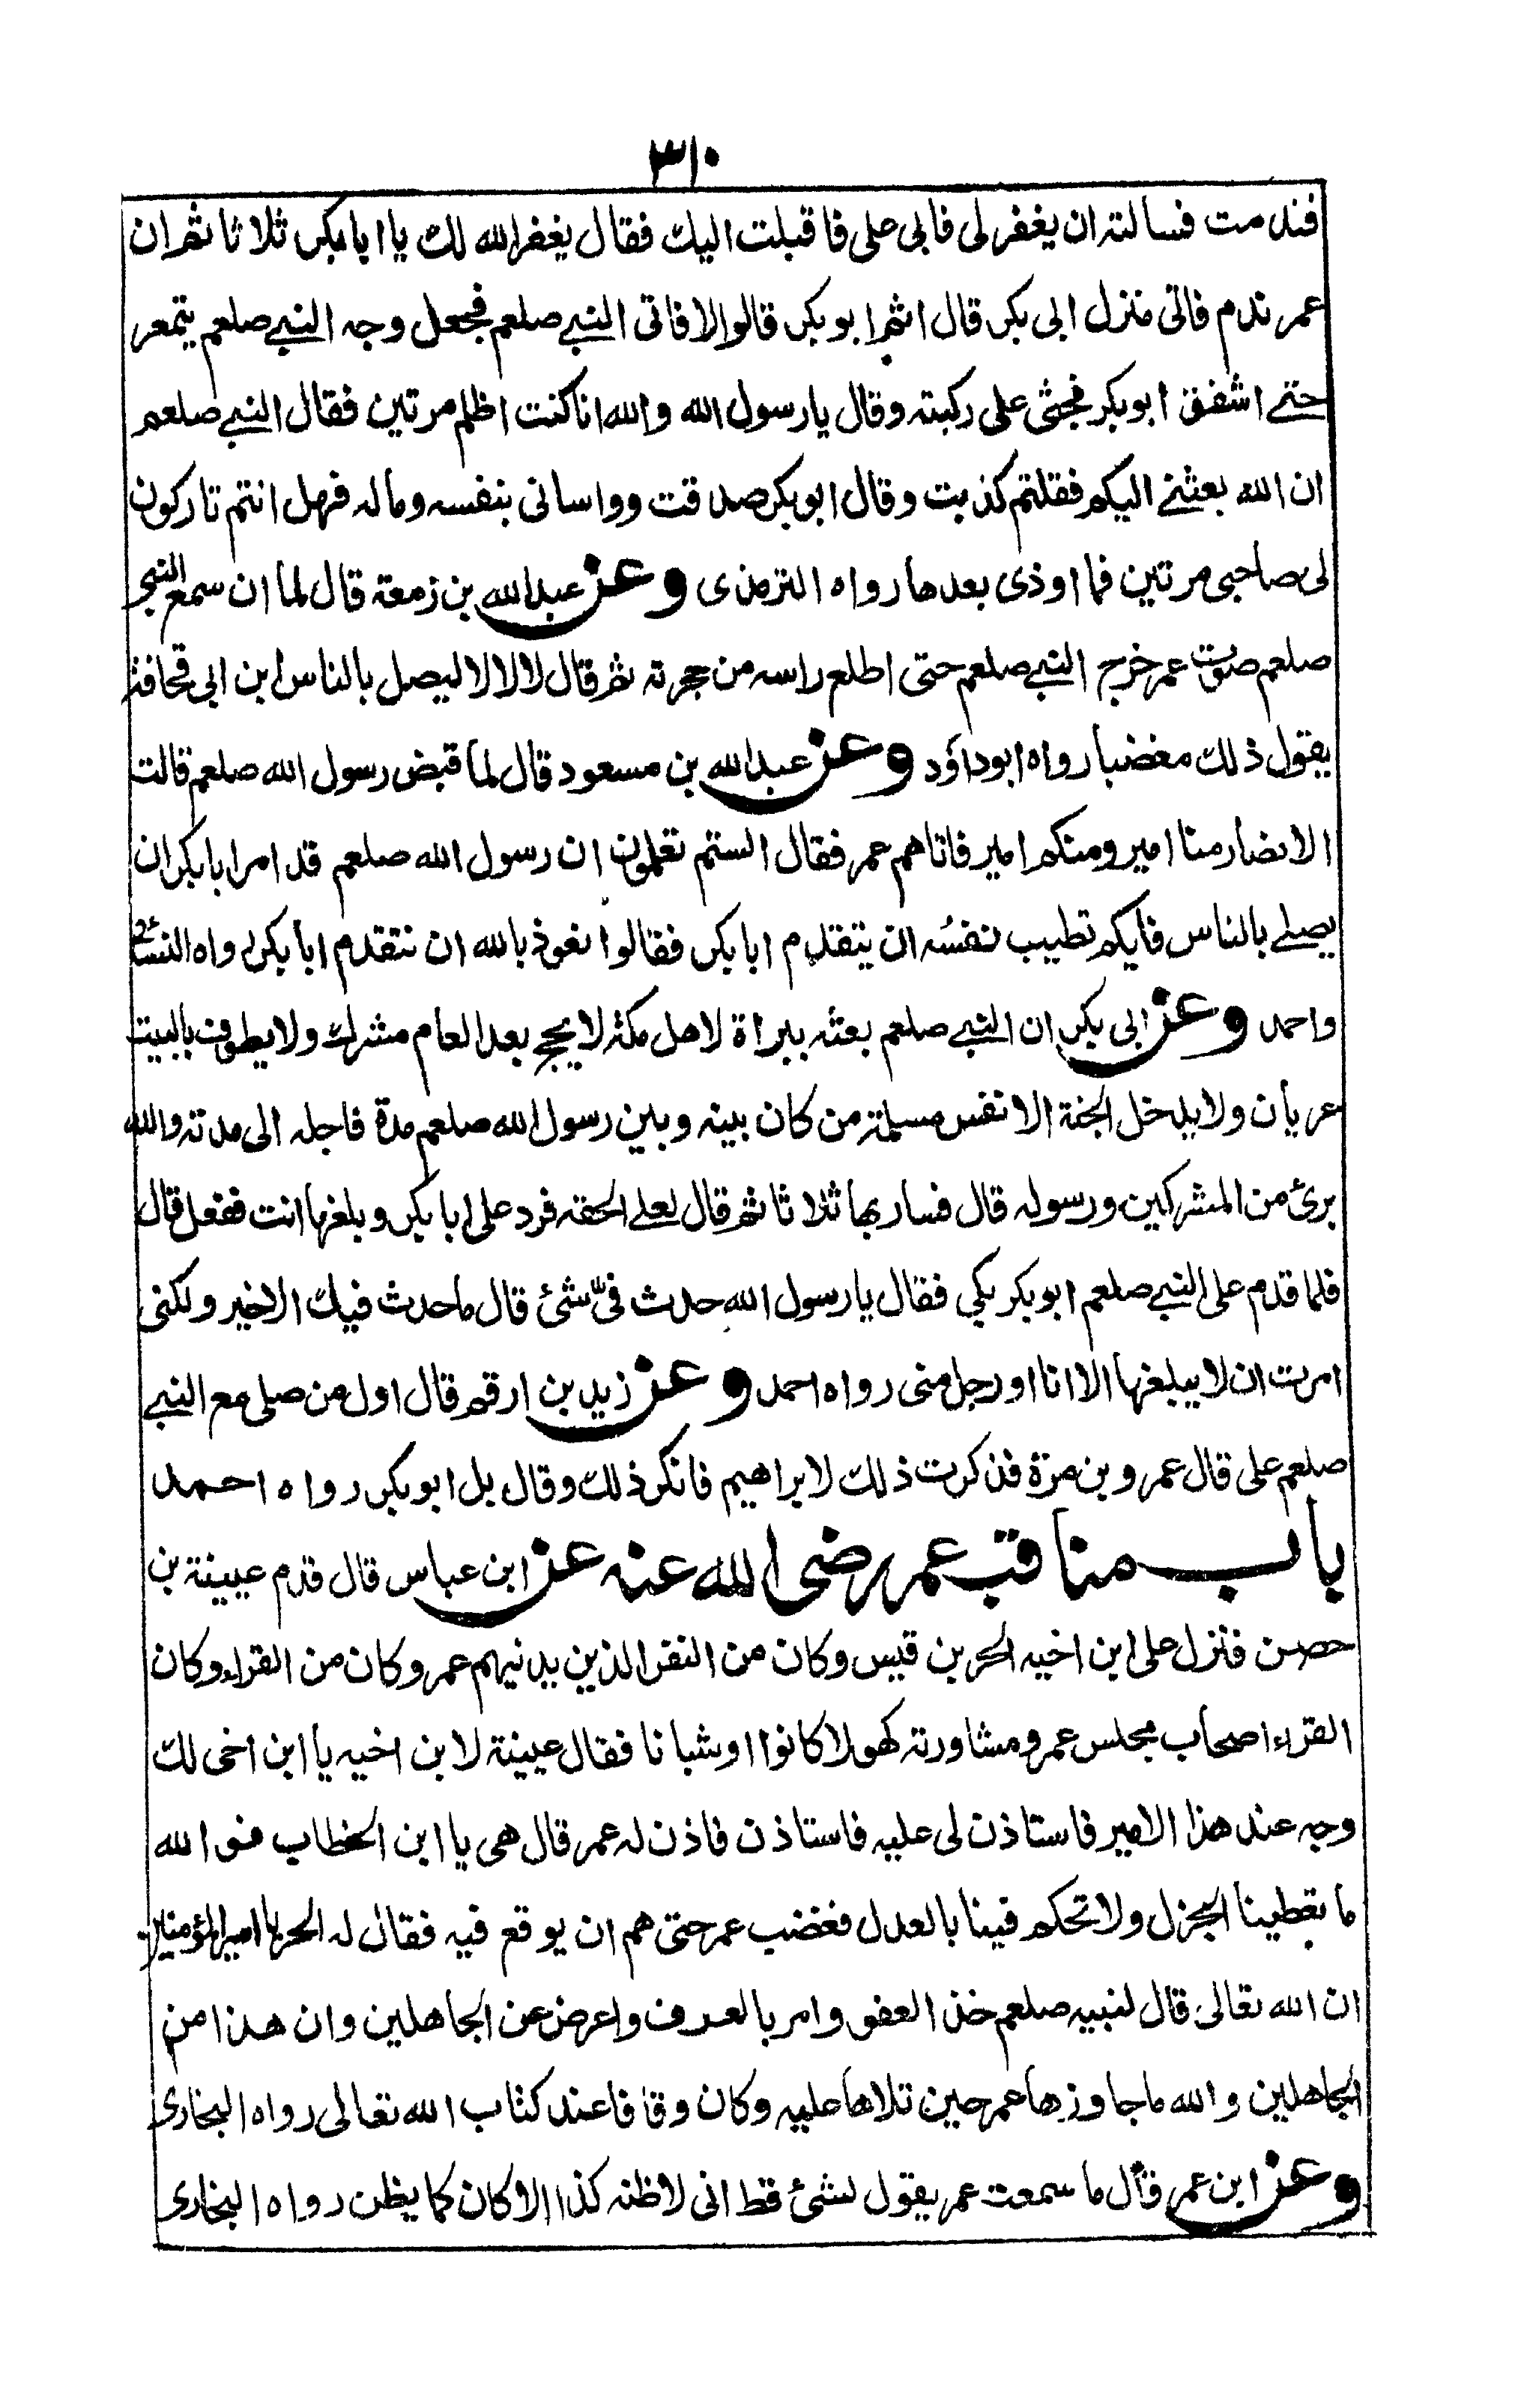 ٣١٠
فندمت فسالته ان يغفر لى فابى على فاقبلت اليك فقال يغفر الله لك يا ابا بكر ثلاثا ثم ان
عمر ندم فاتى منزل ابى بكر قال اثم ابو بكر قالوا لا فاتى النبي صلعم فجعل وجه النبي صلعم يتمعر
حتى اشفق ابوبكر فجثى على ركبته وقال يا رسول الله والله انا كنت اظلم مرتين فقال النبي صلعم
ان الله بعثني اليكم فقلتم كذبت وقال ابوبكر صدقت وواسانى بنفسه وماله فهل انتم تاركون
لى صاحبى مرتين فما اوذى بعدها رواه الترمذى وعن عبد الله بن زمعة قال لما ان سمع النبي
صلعم صوت عمر خرج النبي صلعم حتى اطلع راسه من حجرته ثم قال لا لا لا ليصل بالناس ابن ابى قحافة
يقول ذلك مغضبا رواه ابوداؤد وعن عبد الله بن مسعود قال لما قبض رسول الله صلعم قالت
الانصار منا امير ومنكم امير فاتاهم عمر فقال الستم تعلمون ان رسول الله صلعم قد امر ابا بكر ان
يصلي بالناس فايكم تطيب نفسه ان يتقدم ابا بكر فقالوا نعوذ بالله ان نتقدم ابا بكر رواه النسائي
واحمد وعن ابى بكر ان النبي صلعم بعثه ببراة لاهل مكة لا يحج بعد العام مشرك ولا يطوف بالبيت
عريان ولا يدخل الجنة الا نفس مسلمة من كان بينه وبين رسول الله صلعم مدة فاجله الى مدته والله
برئ من المشركين ورسوله قال فسار بها ثلاثا ثم قال لعلي الحقه فرد على ابا بكر وبلغها انت ففعل قال
فلما قدم على النبي صلعم ابو بكر بكى فقال يا رسول الله حدث فيّ شئ قال ما حدث فيك الا خير ولكنى
امرت ان لا يبلغها الا انا او رجل منى رواه احمد وعن زيد بن ارقم قال اول من صلى مع النبي
صلعم على قال عمرو بن مرة فذكرت ذلك لابراهيم فانكر ذلك وقال بل ابو بكر رواه احمد
باب مناقب عمر رضى الله عنه عن ابن عباس قال قدم عيينة بن
حصن فنزل على ابن اخيه الحر بن قيس وكان من النفر الذين يدنيهم عمر وكان من القراء وكان
القراء اصحاب مجلس عمر ومشاورته كهولا كانوا اوشبانا فقال عيينة لابن اخيه يا ابن اخى لك
وجه عند هذا الامير فاستاذن لى عليه فاستاذن فاذن له عمر قال هى يا ابن الخطاب فوالله
ما تعطينا الجزل ولا تحكم فينا بالعدل فغضب عمر حتى هم ان يوقع فيه فقال له الحر يا امير المؤمنين
ان الله تعالى قال لنبيه صلعم خذ العفو وامر بالعرف واعرض عن الجاهلين وان هذا من
الجاهلين والله ما جاوزها عمر حين تلاها عليه وكان وقافا عند كتاب الله تعالى رواه البخارى
وعن ابن عمر قال ما سمعت عمر يقول لشئ قط انى لاظنه كذا الا كان كما يظن رواه البخارى